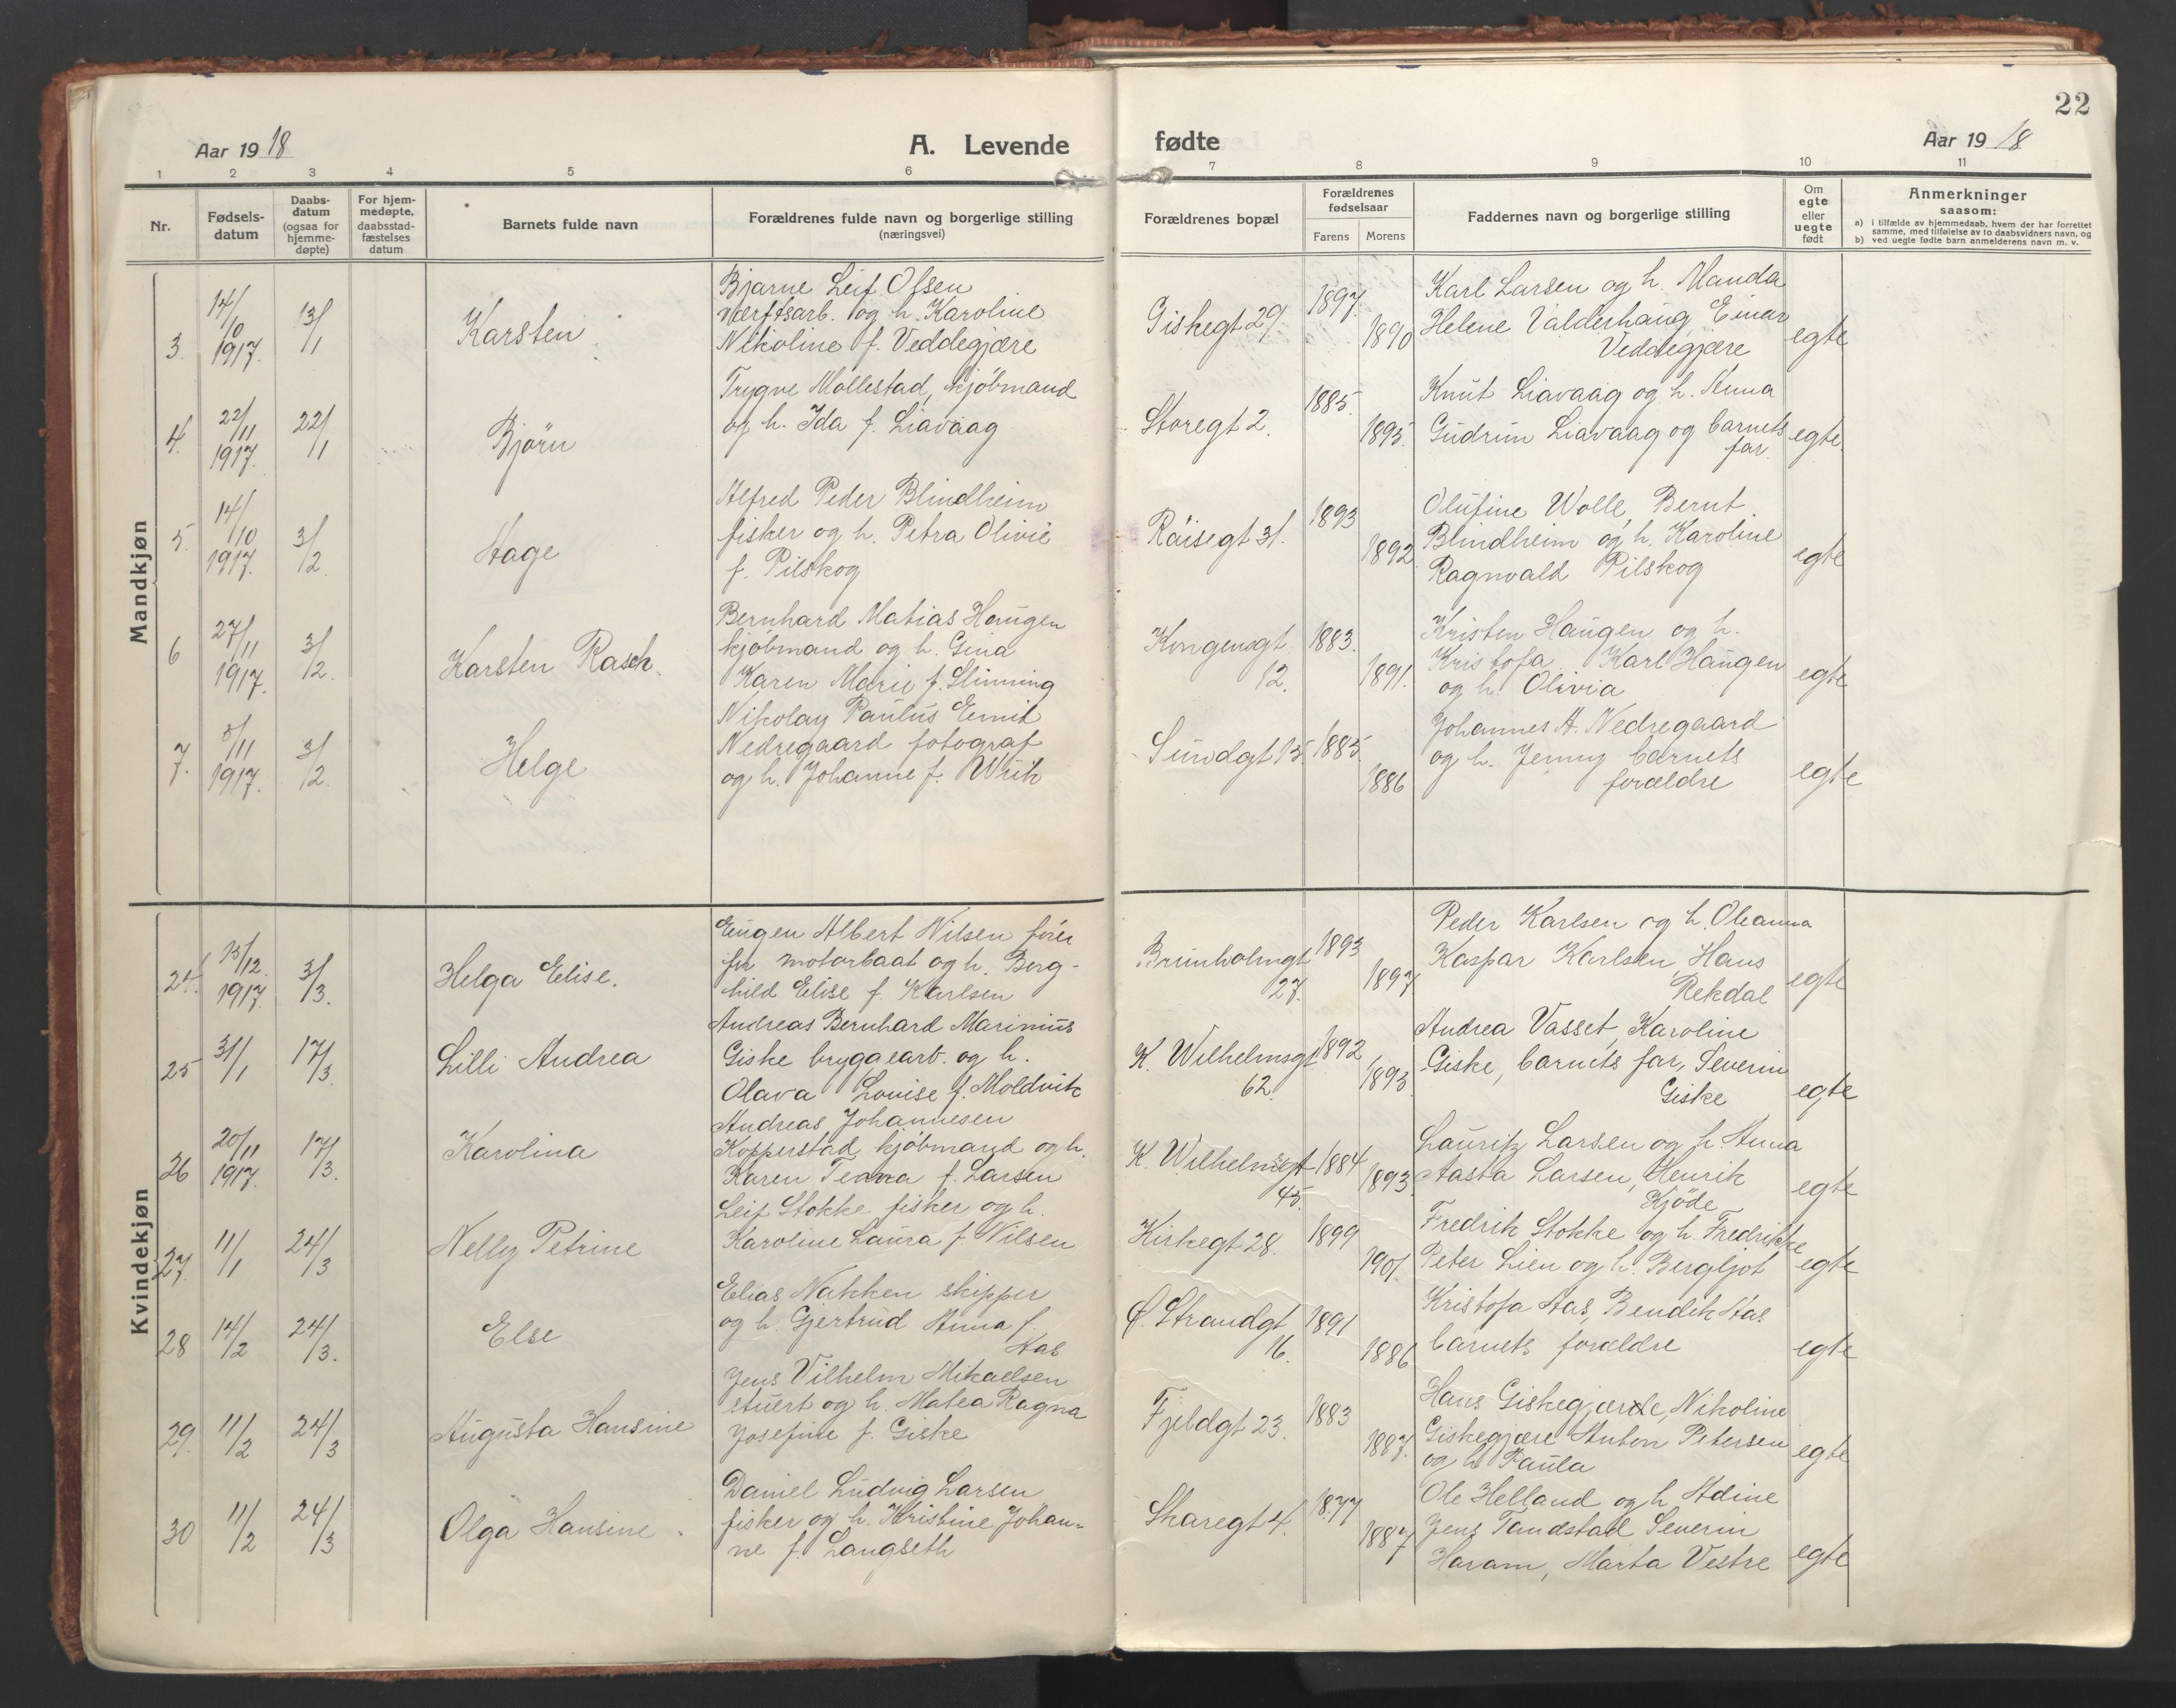 22
Aar 1918
A. Levende
fødte
Aar 1918
1 2 3 4 5 6 7 8 9 10 11
Nr.
Fødsels-
datum
Daabs-
datum
(ogsaa for
hjemme-
døpte)
For hjem-
medøpte,
daabsstad-
fæstelses
datum
Barnets fulde navn
Forældrenes fulde navn og borgerlige stilling
(næringsvei)
Forældrenes bopæl
Forældrenes
fødselsaar
Farens Morens
Faddernes navn og borgerlige stilling
Om
egte
eller
uegte
født
Anmerkninger
saasom:
a) i tilfælde av hjemmedaab, hvem der har forrettet
samme, med tilføielse av to daabsvidners navn, og
b) ved uegte fødte barn anmelderens navn m. v.
Mandkjøn
3. 14/10 1917. 13/1
Karsten
Bjarne Leif Olsen
værftsarb. og h. Karoline
Nikoline f. Veddegjære
Giskegt 29. 1897. 1890
Karl Larsen og h. Manda
Helene Valderhaug, Einar
Veddegjære
egte
4. 22/11 1917. 22/1
Bjørn
Trygve Mollestad, kjøbmand
og h. Ida f. Liavaag
Storegt 2. 1885. 1895.
Knut Liavaag og h. Anna
Gudrun Liavaag og barnets
far
egte.
5. 14/10 1917. 3/2
Hage
Alfred Peder Blindheim
fisker og h. Petra Olivie
f. Pilskog
Røisegt 31. 1893 1892.
Olufine Wolle, Bernt
Blindheim og h. Karoline
Ragnvald Pilskog
egte
6 27/11 1917. 3/2.
Karsten Rasch.
Bernhard Matias Haugen
kjøbmand og h. Gina
Karen Marie f. Slinning
Kongensgt.
12. 1883. 1891.
Kristen Haugen og h.
Kristofa. Karl Haugen
og h. Olivia
egte
7. 5/11 1917. 3/2
Helge
Nikolay Paulus Emil
Nedregaard fotograf
og h. Johanne f. Wiik
Sundgt 15. 1885. 1886
Johannes A. Nedregaard
og h. Jenny barnets
forældre
egte
Kvindekjøn
24. 15/12. 1917. 3/3.
Helga Elise.
Eugen Albert Nilsen fører
for motorbaat og h. Borg-
hild Elise f. Karlsen
Brunholmgt
27. 1893 1897
Peder Karlsen og h. Oleanna
Kaspar Karlsen, Hans
Rekdal
egte
25 31/1 17/3.
Lilli Andrea
Andreas Bernhard Marinius
Giske bryggearb. og h.
Olava Lovise f. Moldvik
K. Wilhelmsgt
62. 1892 1893.
Andrea Vasset, Karoline
Giske, barnets far, Severin
Giske
egte
26 20/11 1917. 17/3.
Karolina
Andreas Johannesen
Kopperstad, kjøbmand og h.
Karen Teana f. Larsen
K. Wilhelmsgt
45. 1884 1893.
Lauritz Larsen og h. Anna
Aasta Larsen, Henrik
Kjøde
egte
27. 11/1 24/3
Nelly Petrine
Leif Stokke fisker og h.
Karoline Laura f. Nilsen
Kirkegt 28. 1899 1901.
Fredrik Stokke og h. Fredrikke
Peter Lien og h. Bergljot
egte
28 14/2 24/3.
Else
Elias Nakken skipper
og h. Gjertrud Anna f.
Aas
Ø. Strandgt
16. 1891 1886
Kristofa Aas, Bendik Aas
barnets forældre
egte
29. 11/2 24/3
Augusta Hansine
Jens Vilhelm Mikaelsen
stuert og h. Matea Ragna
Josefine f. Giske
Fjeldgt 23. 1883 1887.
Hans Giskegjærde, Nikoline
Giskegjære Anton Petersen
og h. Paula
egte
30 11/2 24/3
Olga Hansine.
Daniel Ludvig Larsen
fisker og h. Kristine Johan-
ne f. Langseth
Skaregt 4. 1877 1887
Ole Helland og h. Adine
Jens Tandstad Severin
Haram, Marta Vestre
egte